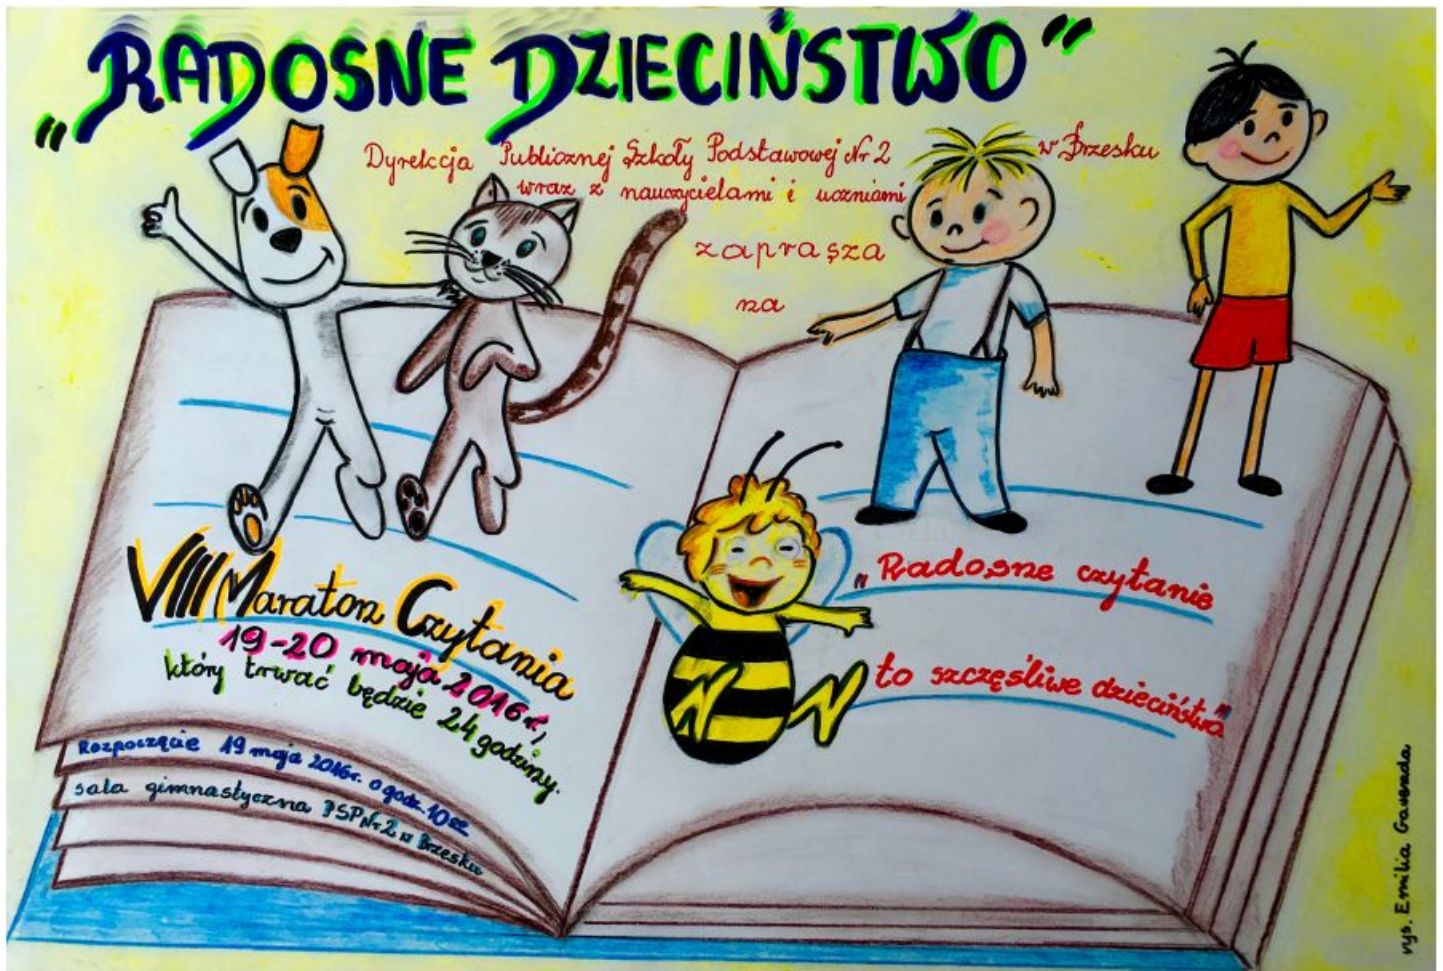 „RADOSNE DZIECIŃSTWO”
Dyrekcja Publicznej Szkoły Podstawowej Nr 2 w Brzesku
wraz z nauczycielami i uczniami
zaprasza
na
VIII Maraton Czytania
19-20 maja 2016r,
który trwać będzie 24 godziny.
Rozpoczęcie 19 maja 2016r. o godz. 10 00
sala gimnastyczna PSP Nr 2 w Brzesku
"Radosne czytanie
to szczęśliwe dzieciństwo"
rys. Emilia Gawenda